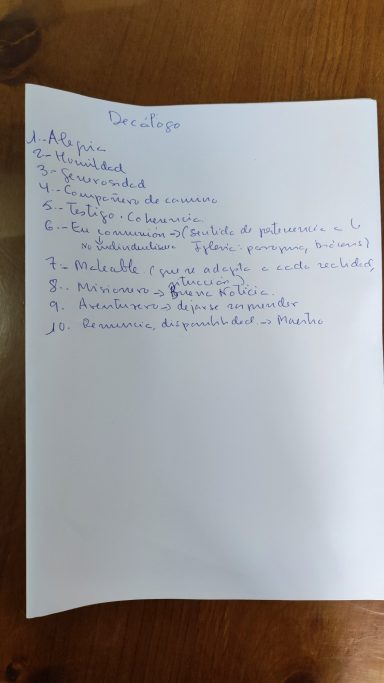 Decálogo
1.- Alegria
2.- Humildad
3.- Generosidad
4.- Compañero de camino
5.- Testigo. Coherencia
6.- En comunión → (sentido de pertenencia a la
No individualismo Iglesia: parroquia, diócesis)
7.- Maleable (que se adapta a cada realidad,
situación)
8.- Misionero → Buena Noticia.
9. Aventurero → dejarse sorprender
10. Renuncia, disponibilidad → Maestro